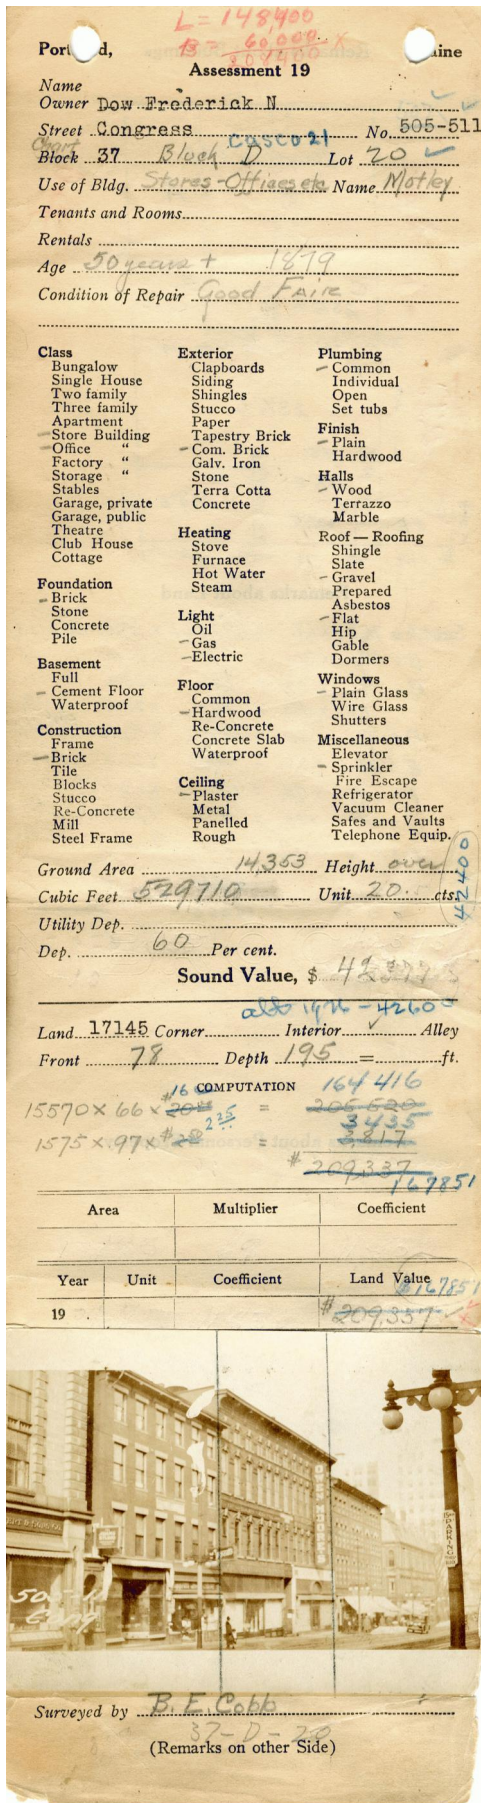 L = 148400
B = 60,000 X
208400
Port d, aine
Assessment 19
Name
Owner Dow Frederick N
Street Congress No. 505-511
Chart Casco 21
Block 37 Block D Lot 20
Use of Bldg. Stores-Offices etc Name Motley
Tenants and Rooms
Rentals
Age 50 years + 1879
Condition of Repair Good FAIR
Class
Bungalow
Single House
Two family
Three family
Apartment
Store Building
Office "
Factory "
Storage "
Stables
Garage, private
Garage, public
Theatre
Club House
Cottage
Foundation
Brick
Stone
Concrete
Pile
Basement
Full
Cement Floor
Waterproof
Construction
Frame
Brick
Tile
Blocks
Stucco
Re-Concrete
Mill
Steel Frame
Exterior
Clapboards
Siding
Shingles
Stucco
Paper
Tapestry Brick
Com. Brick
Galv. Iron
Stone
Terra Cotta
Concrete
Heating
Stove
Furnace
Hot Water
Steam
Light
Oil
Gas
Electric
Floor
Common
Hardwood
Re-Concrete
Concrete Slab
Waterproof
Ceiling
Plaster
Metal
Panelled
Rough
Plumbing
Common
Individual
Open
Set tubs
Finish
Plain
Hardwood
Halls
Wood
Terrazzo
Marble
Roof — Roofing
Shingle
Slate
Gravel
Prepared
Asbestos
Flat
Hip
Gable
Dormers
Windows
Plain Glass
Wire Glass
Shutters
Miscellaneous
Elevator
Sprinkler
Fire Escape
Refrigerator
Vacuum Cleaner
Safes and Vaults
Telephone Equip.
Ground Area 14,353 Height over
Cubic Feet 529710 Unit 20. cts.
42400
Utility Dep.
Dep. 60 Per cent.
Sound Value, $
1926 - 42600
Land 17145 Corner Interior ✓ Alley
Front 78 Depth 195 = ft.
COMPUTATION 164 416
15570 × 66 × = 206 620
2 25 3435
1575 × 97 × = 3,817
$ 209,337
167851
Area Multiplier Coefficient
Year Unit Coefficient Land Value
$167851
19 $ 209,337
PARKING
Cong
Surveyed by B. E. Cobb
37-D-20
(Remarks on other Side)